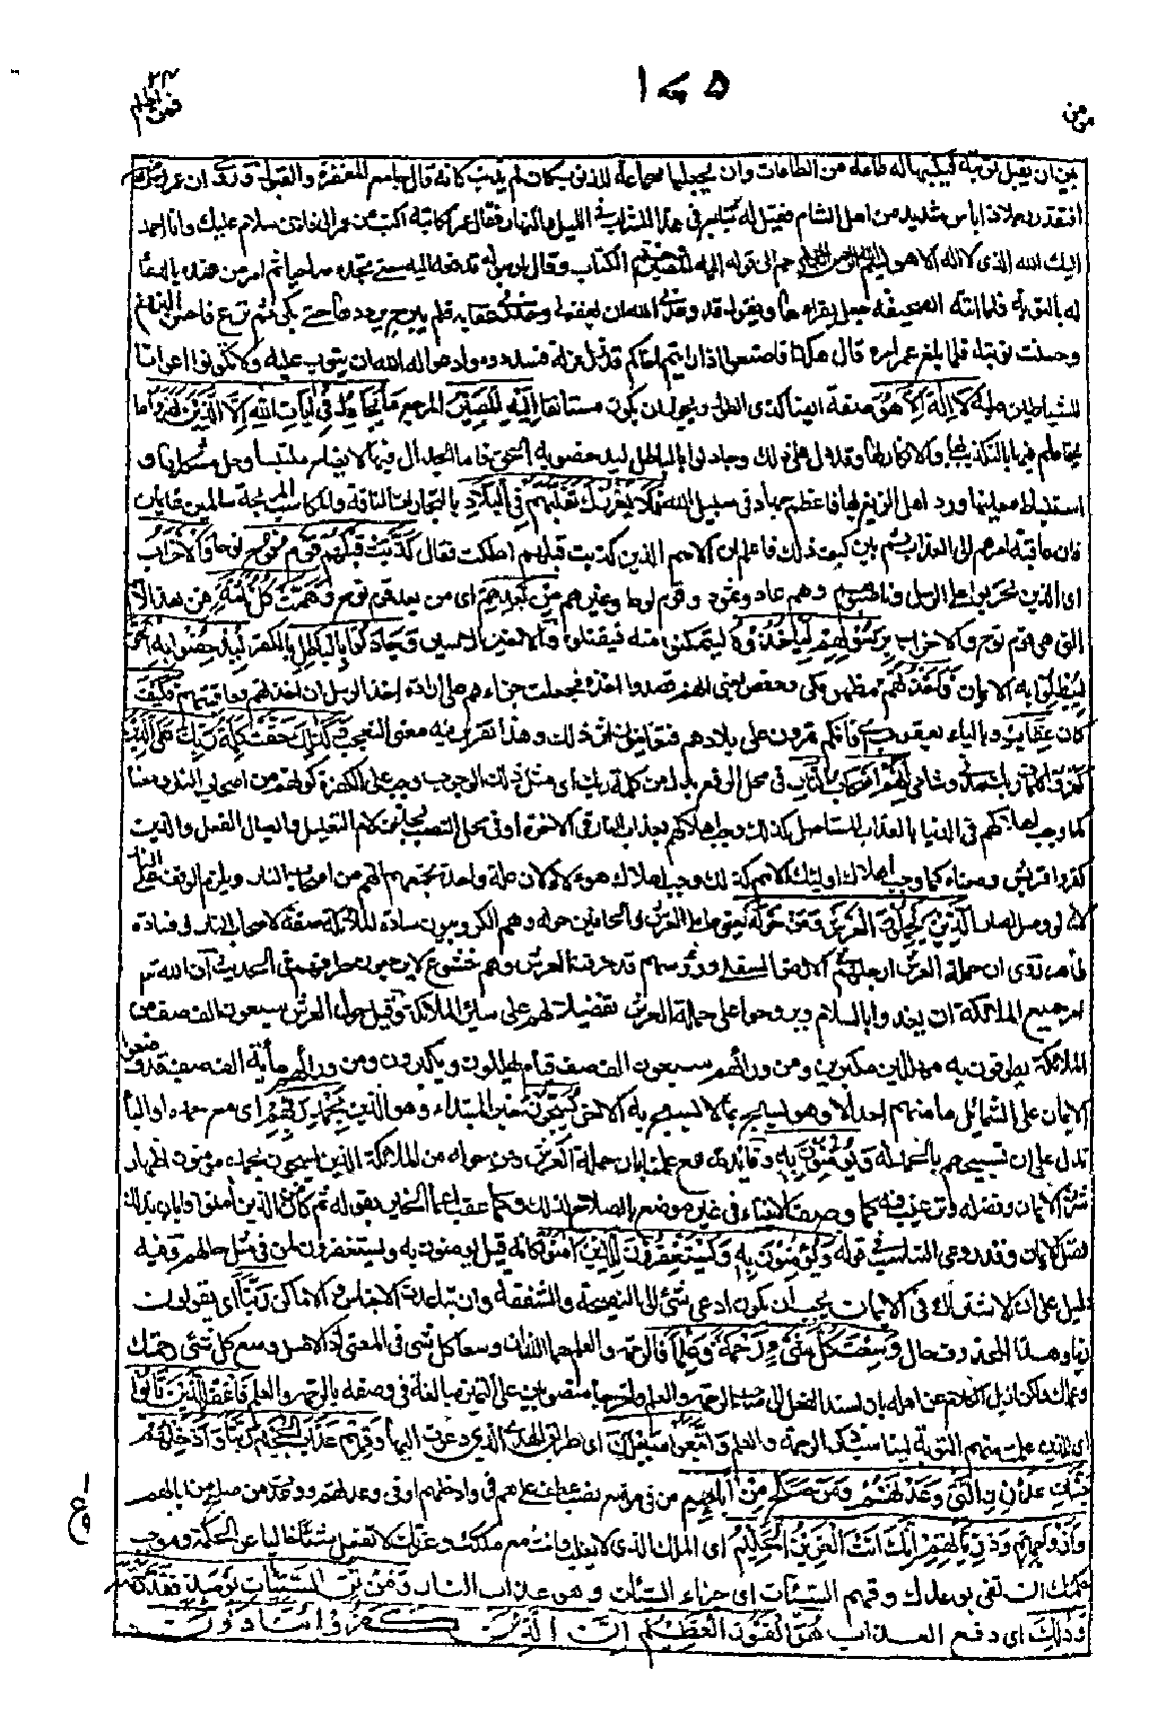 ٢٤
فمن اظلم
١٢٧٥
مؤمن
بين ان يقبل توبته فيكتبها له طاعة من الطاعات وان يجعلها محاءة للذنوب كان لم يذنب كانه قال جامع المغفرة والقبول وروى ان عمر رضى الله
افتقد رجلا ذا باس شديد من اهل الشام فقيل له تتابع فى هذا الشراب فقال عمر لكاتبه اكتب من عمر الى فلان سلام عليك وانا احمد
اليك الله الذى لا اله الا هو بسم الله الرحمن الرحيم حم الى قوله اليه المصير وختم الكتاب وقال لرسوله لا تدفعه اليه حتى تجده صاحيا ثم امر من عنده بالدعاء
له بالتوبة فلما اتته الصحيفة جعل يقراءها ويقول قد وعدنى الله ان يغفر لى وحذرنى عقابه فلم يبرح يرددها حتى بكى ثم نزع فاحسن النزوع
وحسنت توبته فلما بلغ عمر امره قال هكذا فاصنعوا اذا رايتم اخاكم قد زل زلة فسددوه وادعوا له الله ان يتوب عليه ولا تكونوا اعوانا
للشياطين عليه لا اله الا هو صفة ايضا كذى الطول ويجوز ان يكون مستانفا اليه المصير المرجع ما يجادل فى ايات الله الا الذين كفروا ما
يخاصم فيها بالتكذيب بها والانكار لها وقد دل على ذلك وجادلوا بالباطل ليدحضوا به الحق فاما الجدال فيها لايضاح ملتبسها وحل مشكلها و
استنباط معانيها ورد اهل الزيغ بها فاعظم جهاد فى سبيل الله فلا يغررك تقلبهم فى البلاد بالتجارات النافقة والمكاسب المربحة سالمين غانمين
فان عاقبة امرهم الى العذاب ثم بين كيف ذلك فاعلم ان الامم الذين كذبت قبلهم اهلكت فقال كذبت قبلهم قوم نوح نوحا والاحزاب
اى الذين تحزبوا على الرسل وناصبوهم وهم عاد وثمود وقوم لوط وغيرهم من بعدهم اى من بعد قوم نوح وهمت كل امة من هذه الامم
التى هى قوم نوح والاحزاب برسولهم لياخذوه ليتمكنوا منه فيقتلوه والاخيذ الاسير وجادلوا بالباطل بالكفر ليدحضوا به الحق
ليبطلوا به الايمان فاخذتهم مظهر مكى وحفص يعنى انهم قصدوا اخذه فجعلت جزاءهم على ارادة اخذ الرسل ان اخذتهم وعاقبتهم فكيف
كان عقاب وبالياء يعقوب اى فانكم تمرون على بلادهم فتعاينون اثر ذلك وهذا تقرير فيه معنى التعجيب وكذلك حقت كلمة ربك على الذين
كفروا كلمات ربك مدنى وشامى انهم اصحاب النار فى محل الرفع بدل من كلمة ربك اى مثل ذلك الوجوب وجب على الكفرة كونهم من اصحاب النار ومعناه
كما وجب اهلاكهم فى الدنيا بالعذاب المستاصل كذلك وجب اهلاكهم بعذاب النار فى الاخرة او فى محل النصب بحذف لام التعليل وايصال الفعل والذين
كفروا قريش ومعناه كما وجب اهلاك اولئك الامم كذلك وجب اهلاك هؤلاء لان علة واحدة تجمعهم انهم من اصحاب النار ويلزم الوقف على النار
لانه لو وصل لصار الذين يحملون العرش ومن حوله يعنى حاملى العرش والحافين حوله وهم الكروبيون سادة الملائكة صفة لاصحاب النار وفساده
ظاهر روى ان حملة العرش ارجلهم فى الارض السفلى ورؤسهم قد خرقت العرش وهم خشوع لا يرفعون طرفهم وفى الحديث ان الله تعالى
امر جميع الملائكة ان يغدوا ويروحوا بالسلام على حملة العرش تفضيلا لهم على سائر الملائكة وقيل حول العرش سبعون الف صف من
الملائكة يطوفون به مهللين مكبرين ومن ورائهم سبعون الف صف قيام يهللون ويكبرون ومن ورائهم مائة الف صف قد وضعوا
الايمان على الشمائل ما منهم احد الا وهو يسبح بما لا يسبح به الاخر يسبحون خبر المبتداء وهو الذين بحمد ربهم اى مع حمده اذ الباء
تدل على ان تسبيحهم بالحمدلة ويؤمنون به وفائدته مع علمنا بان حملة العرش ومن حوله من الملائكة الذين يسبحون بحمده مؤمنون اظهار
شرف الايمان وفضله والترغيب فيه كما وصف الانبياء فى غير موضع بالصلاح لذلك وكما عقب اعمال الخير بقوله ثم كان من الذين امنوا فابان بذلك
فضل الايمان وقد روعى التناسب فى قوله ويؤمنون به ويستغفرون للذين امنوا كانه قيل ويؤمنون به ويستغفرون لمن فى مثل حالهم وفيه
دليل على ان الاشتراك فى الايمان يجب ان يكون ادعى شئ الى النصيحة والشفقة وان تباعدت الاجناس والاماكن ربنا اى يقولون
ربنا وهذا المحذوف حال وسعت كل شئ رحمة وعلما فالرحمة والعلم هما اللذان وسعا كل شئ فى المعنى اذ الاصل وسع كل شئ رحمتك
وعلمك لكن ازيل الكلام عن اصله بان اسند الفعل الى صاحب الرحمة والعلم واخرجا منصوبين على التمييز مبالغة فى وصفه بالرحمة والعلم فاغفر للذين تابوا
اى للذين علمت منهم التوبة ليناسب ذكر الرحمة والعلم واتبعوا سبيلك اى طريق الهدى الذى دعوت اليها وقهم عذاب الجحيم ربنا وادخلهم
جنات عدن التى وعدتهم ومن صلح من ابائهم من فى موضع نصب عطف على هم فى وادخلهم او فى وعدتهم ووعدت من صلح من ابائهم
وازواجهم وذرياتهم انك انت العزيز الحكيم اى الملك الذى لا يغلب وانت مع ملكك وعزتك لا تفعل شيئا خاليا عن الحكمة وموجب
حكمتك ان تفى بوعدك وقهم السيئات اى جزاء السيئات وهو عذاب النار ومن تق السيئات يومئذ فقد رحمته
وذلك اى دفع العذاب هو الفوز العظيم ان الذين كفروا ينادون